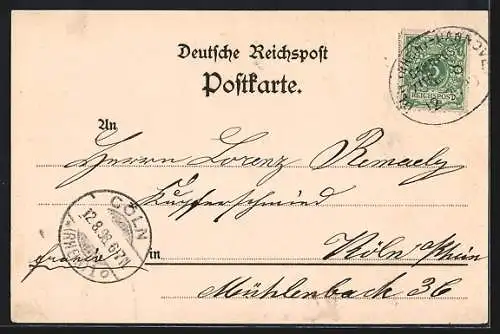 Deutsche Reichspost
Postkarte.
REICHSPOST
An
Herrn Lorenz
Kupferschmied
in Köln Rhein
Mühlenbach 36
CÖLN
12.8.98